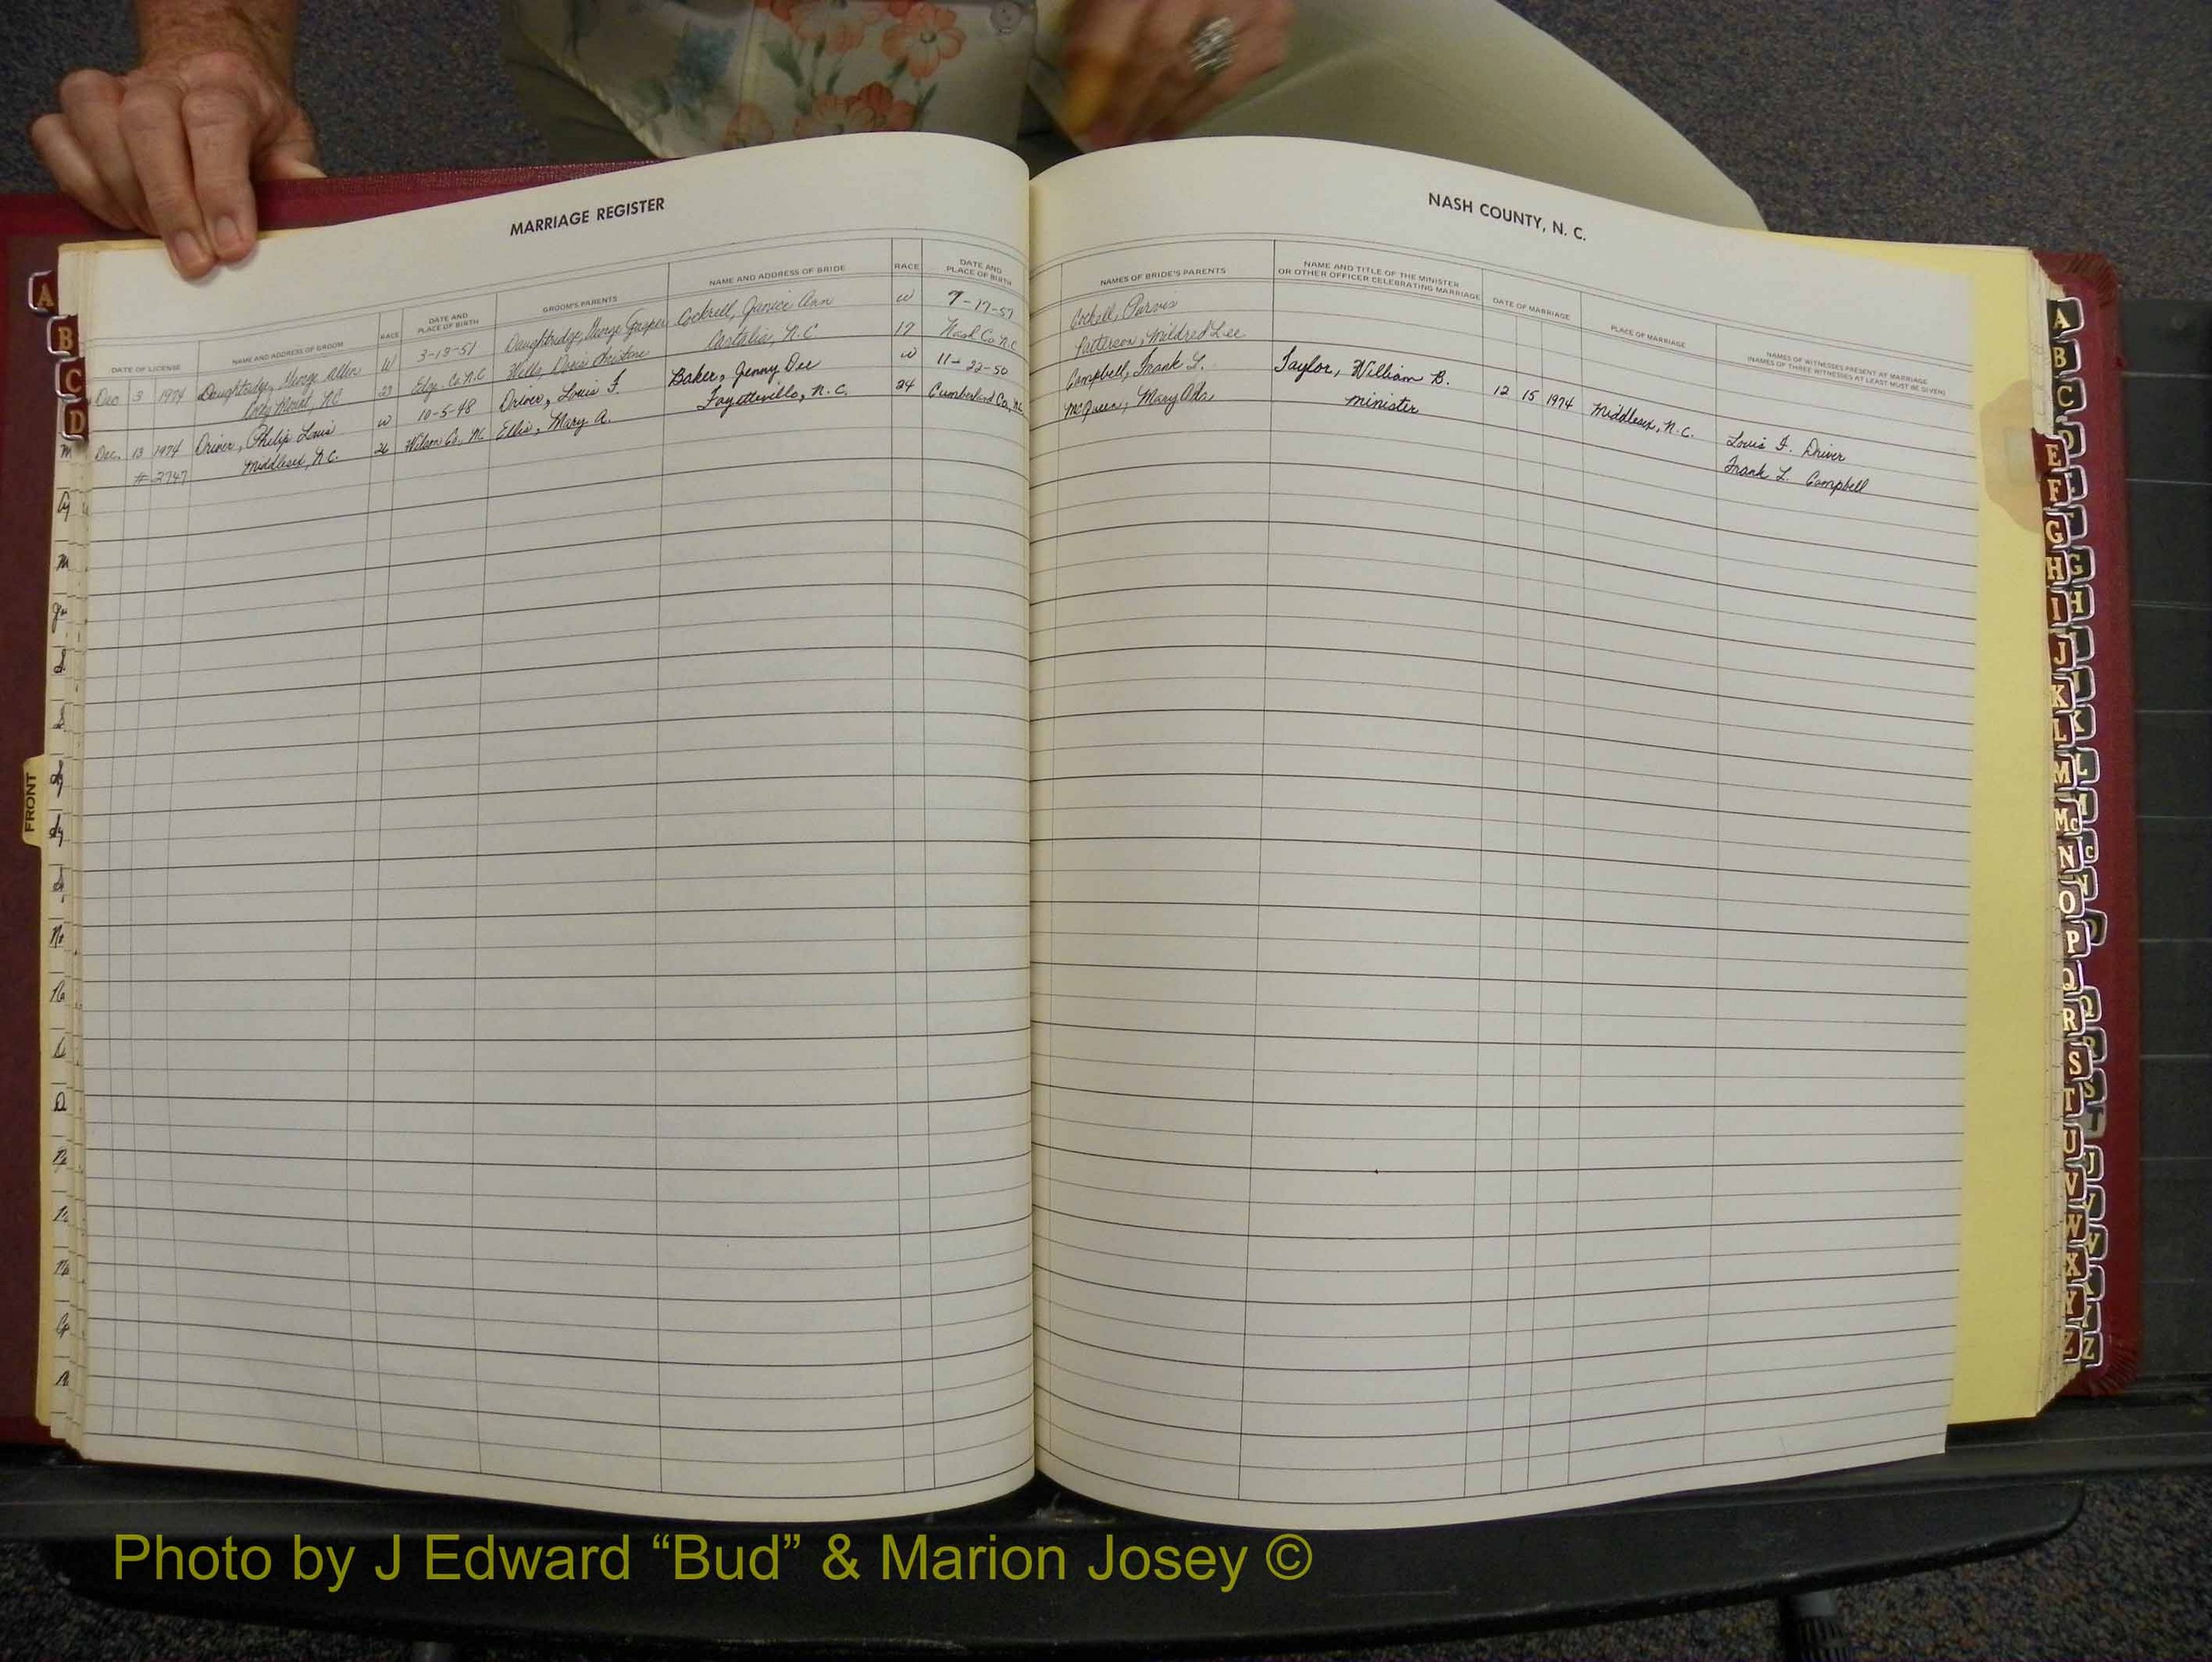 MARRIAGE REGISTER
NASH COUNTY, N. C.
DATE OF LICENSE
NAME AND ADDRESS OF GROOM
RACE
DATE AND
PLACE OF BIRTH
GROOM'S PARENTS
NAME AND ADDRESS OF BRIDE
RACE
DATE AND
PLACE OF BIRTH
NAMES OF BRIDE'S PARENTS
NAME AND TITLE OF THE MINISTER
OR OTHER OFFICER CELEBRATING MARRIAGE
DATE OF MARRIAGE
PLACE OF MARRIAGE
NAMES OF WITNESSES PRESENT AT MARRIAGE
(NAMES OF THREE WITNESSES AT LEAST MUST BE GIVEN)
Dec 3 1974 Daughtridge, George Allen W 3-13-51 Daughtridge, George Gasper Cockrell, Janice Ann W 7-17-57 Cockrell, Purvis
Rocky Mount, NC 23 Edge. Co. N.C. Wells, Doris Christine Castalia, N.C 17 Nash Co N.C Patterson, Mildred Lee
Dec. 13 1974 Driver, Philip Louis W 10-5-48 Driver, Louis F. Baker, Jenny Dee W 11-22-50 Campbell, Frank L. Taylor, William B. 12 15 1974 Middlesex, N.C. Louis F. Driver
#2747 Middlesex, N.C. 26 Wilson Co., NC Ellis, Mary A. Fayetteville, N.C. 24 Cumberland Co., NC McQueen, Mary Ada minister Frank L. Campbell
A
B
C
D
FRONT
A
B
C
D
E
F
G
H
I
J
K
L
M
Mc
N
O
P
Q
R
S
T
U
V
W
X
Y
Z
Photo by J Edward “Bud” & Marion Josey ©